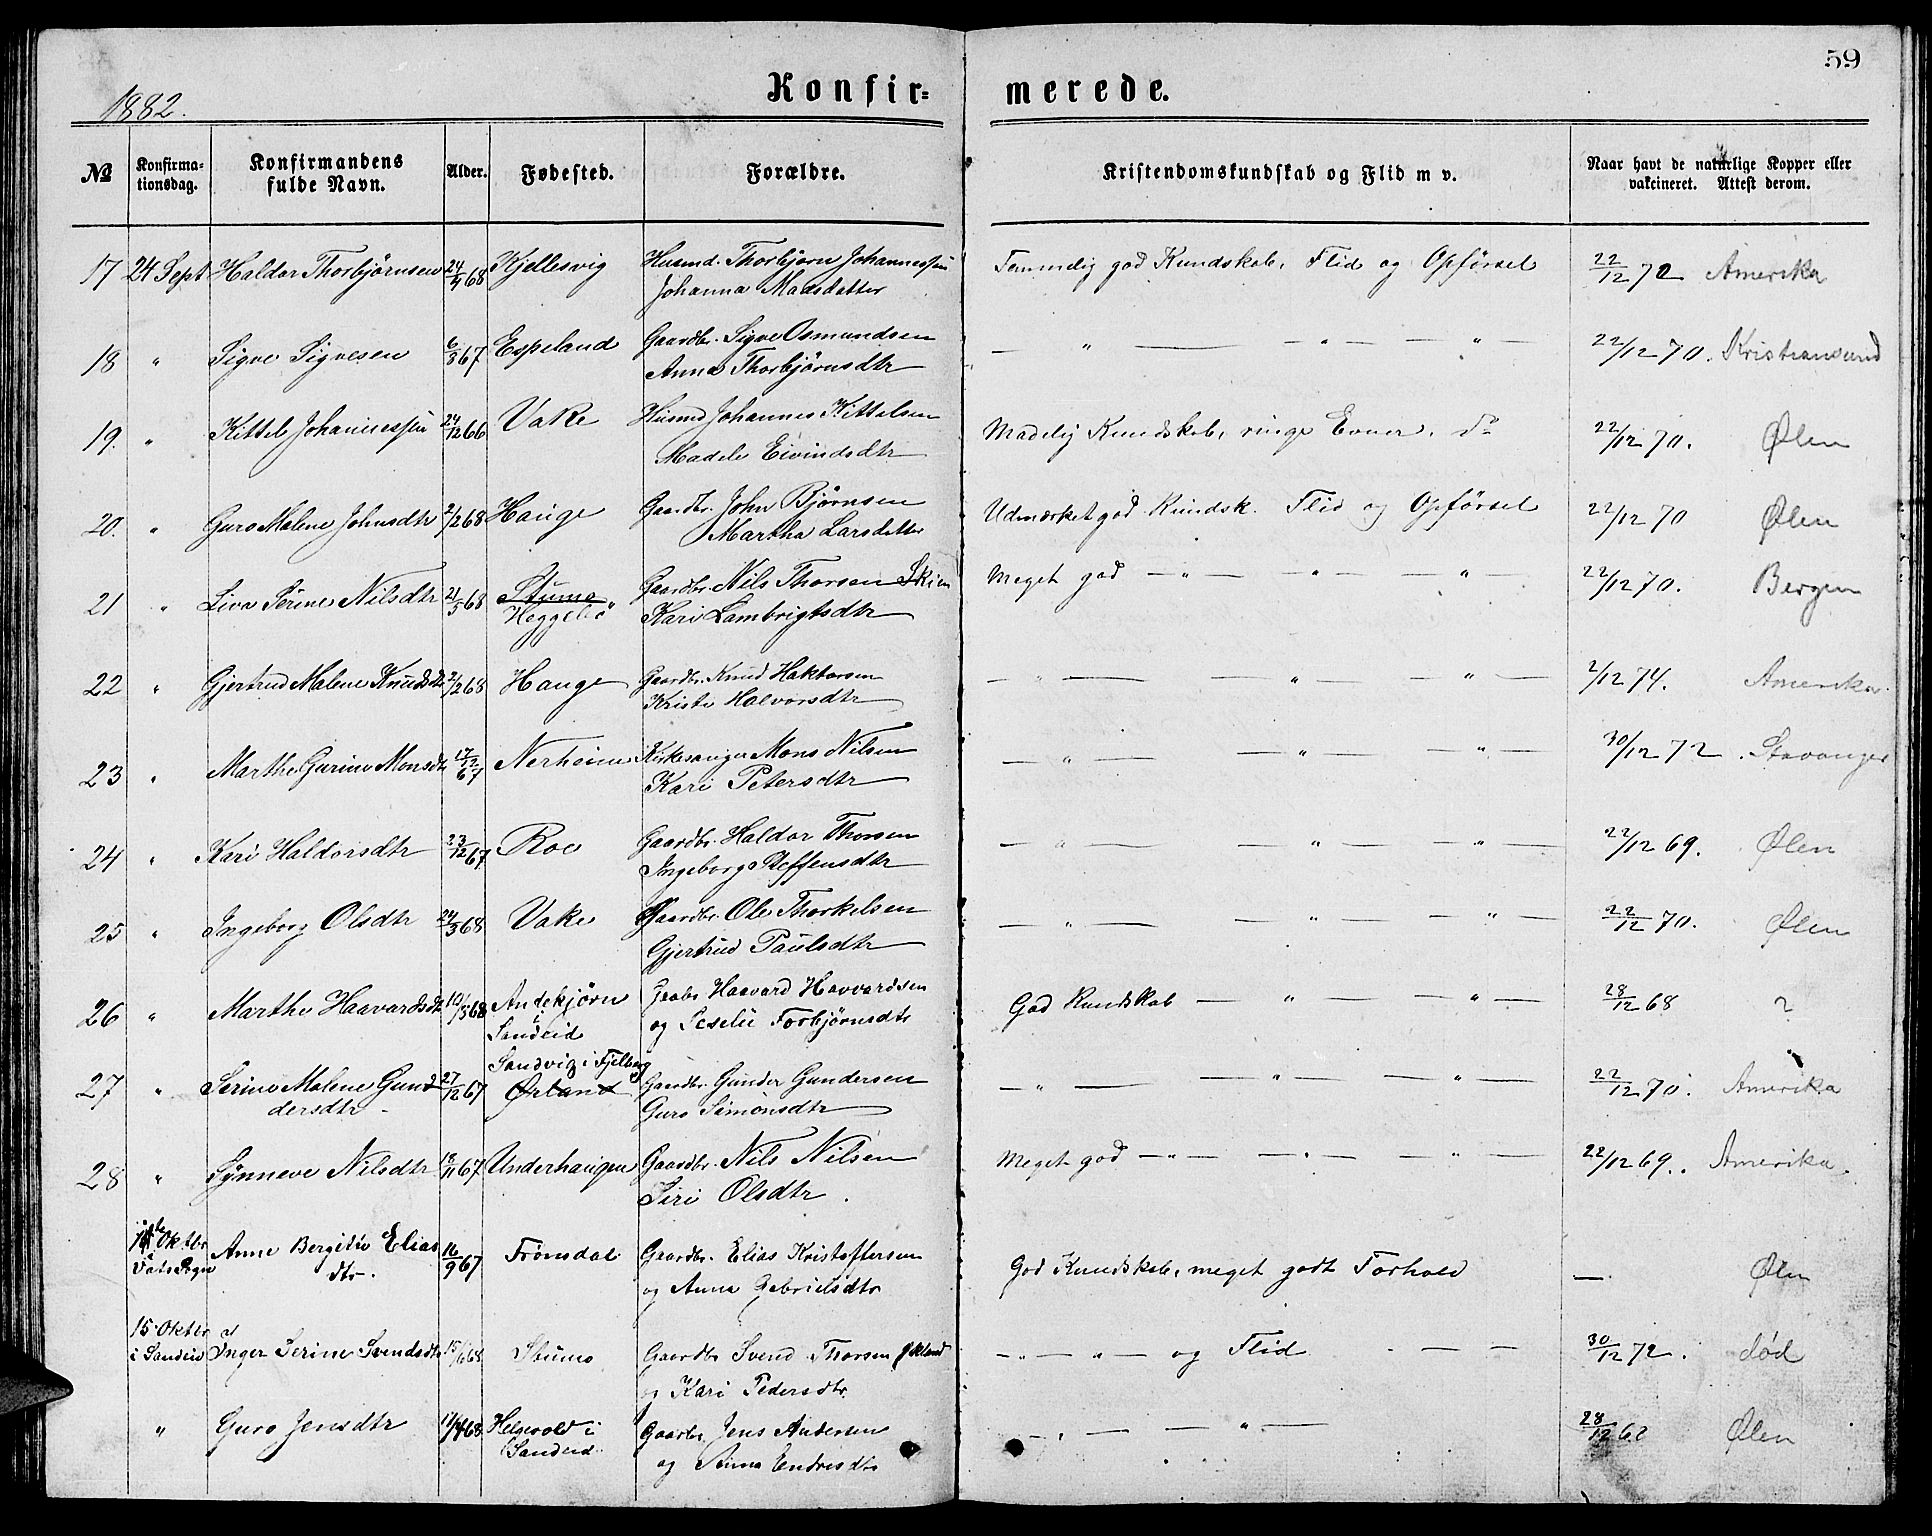 59
1882.
Konfir= merede.
№ Konfirma- tionsdag. Konfirmandens fulde Navn. Alder. Fødested. Forældre. Kristendomskundskab og Flid m v. Naar havt de naturlige Kopper eller vakcineret. Attest derom.
17 24 Sept Haldor Thorbjørnsen 24/4 68 Kjellesvig Husmd. Thorbjørn Johannessen Temmelig god Kundskab, Flid og Opførsel 22/12 72 Amerika
Johanna Madsdatter
18 " Sigve Sigvesen 6/8 67 Espeland Gaardbr. Sigve Osmundsen — " — " — " — 22/12 70. Kristiansund
Anna Thorbjørnsdtr
19. " Kittel Johannessen 24/12 66 Vake Husmd Johannes Kittelsen Madelig Kundskab, ringe Evner, do 22/12 70. Ølen
Madele Eivindsdtr
20. " Guro Malene Johnsdtr 2/2 68 Hauge Gaardbr. John Bjørnsen Udmærket god Kundsk. Flid og Opførsel 22/12 70 Ølen
Martha Larsdatter
21 " Liva Serine Nilsdtr 21/5 68 Stumo Gaardbr. Nils Thorsen Skien Meget god — " — " — " — 22/12 70. Bergen
Heggelo Kari Lambrigtsdtr
22 " Gjertrud Malene Knudsdtr 2/2 68 Hauge Gaardbr. Knud Haktorsen — " — " — " — 2/12 74. Amerika.
Kristi Halvorsdtr
23 " Marthe Gurine Monsdtr 17/12 67 Nerheim Kirkesanger Mons Nilsen — " — " — " — 30/12 72. Stavanger
Kari Petersdtr
24 " Kari Haldorsdtr 23/12 67 Roe Gaardbr. Haldor Thorsen — " — " — " — 22/12 69. Ølen
Ingeborg Steffensdtr
25 " Ingeborg Olsdtr 24/3 68 Vake Gaardbr. Ole Thorkelsen — " — " — " — 22/12 70. Ølen
Gjertrud Paulsdtr
26 " Marthe Haavardsdtr 10/5 68 Andekjørn Grabr Haavard Havvardsen God Kundskab — " — " — 28/12 68 ?
i Sandeid og Seselie Torbjørnsdtr
Sandvig i Fjelberg
27 " Serine Malene Gund- 27/12 67 Ørland Gaardbr. Gunder Gundersen — " — " — " — 22/12 70. Amerika
dersdtr Guro Simonsdtr
28 " Synneve Nilsdtr 18/11 67 Underhaugen Gaardbr. Nils Nilsen Meget god — " — " — " — 22/12 69. Amerika.
Siri Olsdtr.
1ste Oktbr Anne Bergitte Elias 16/9 67 Frønsdal Gaardbr. Elias Kristoffersen God Kundskab, meget godt Forhold — Ølen
Vats Sogn dtr. og Anna Gabrielsdtr
15 Oktbr
i Sandeid Inger Serine Svendsdtr 15/6 68 Stumo Gaardbr Svend Thorsen Økland — " — " — og Flid — — 30/12 72. død
og Kari Pedersdtr.
" Guro Jensdtr 17/4 68 Helgevold i Gaardbr. Jens Andersen — " — — " — 28/12 62 Ølen
Sandeid. og Anna Endresdtr